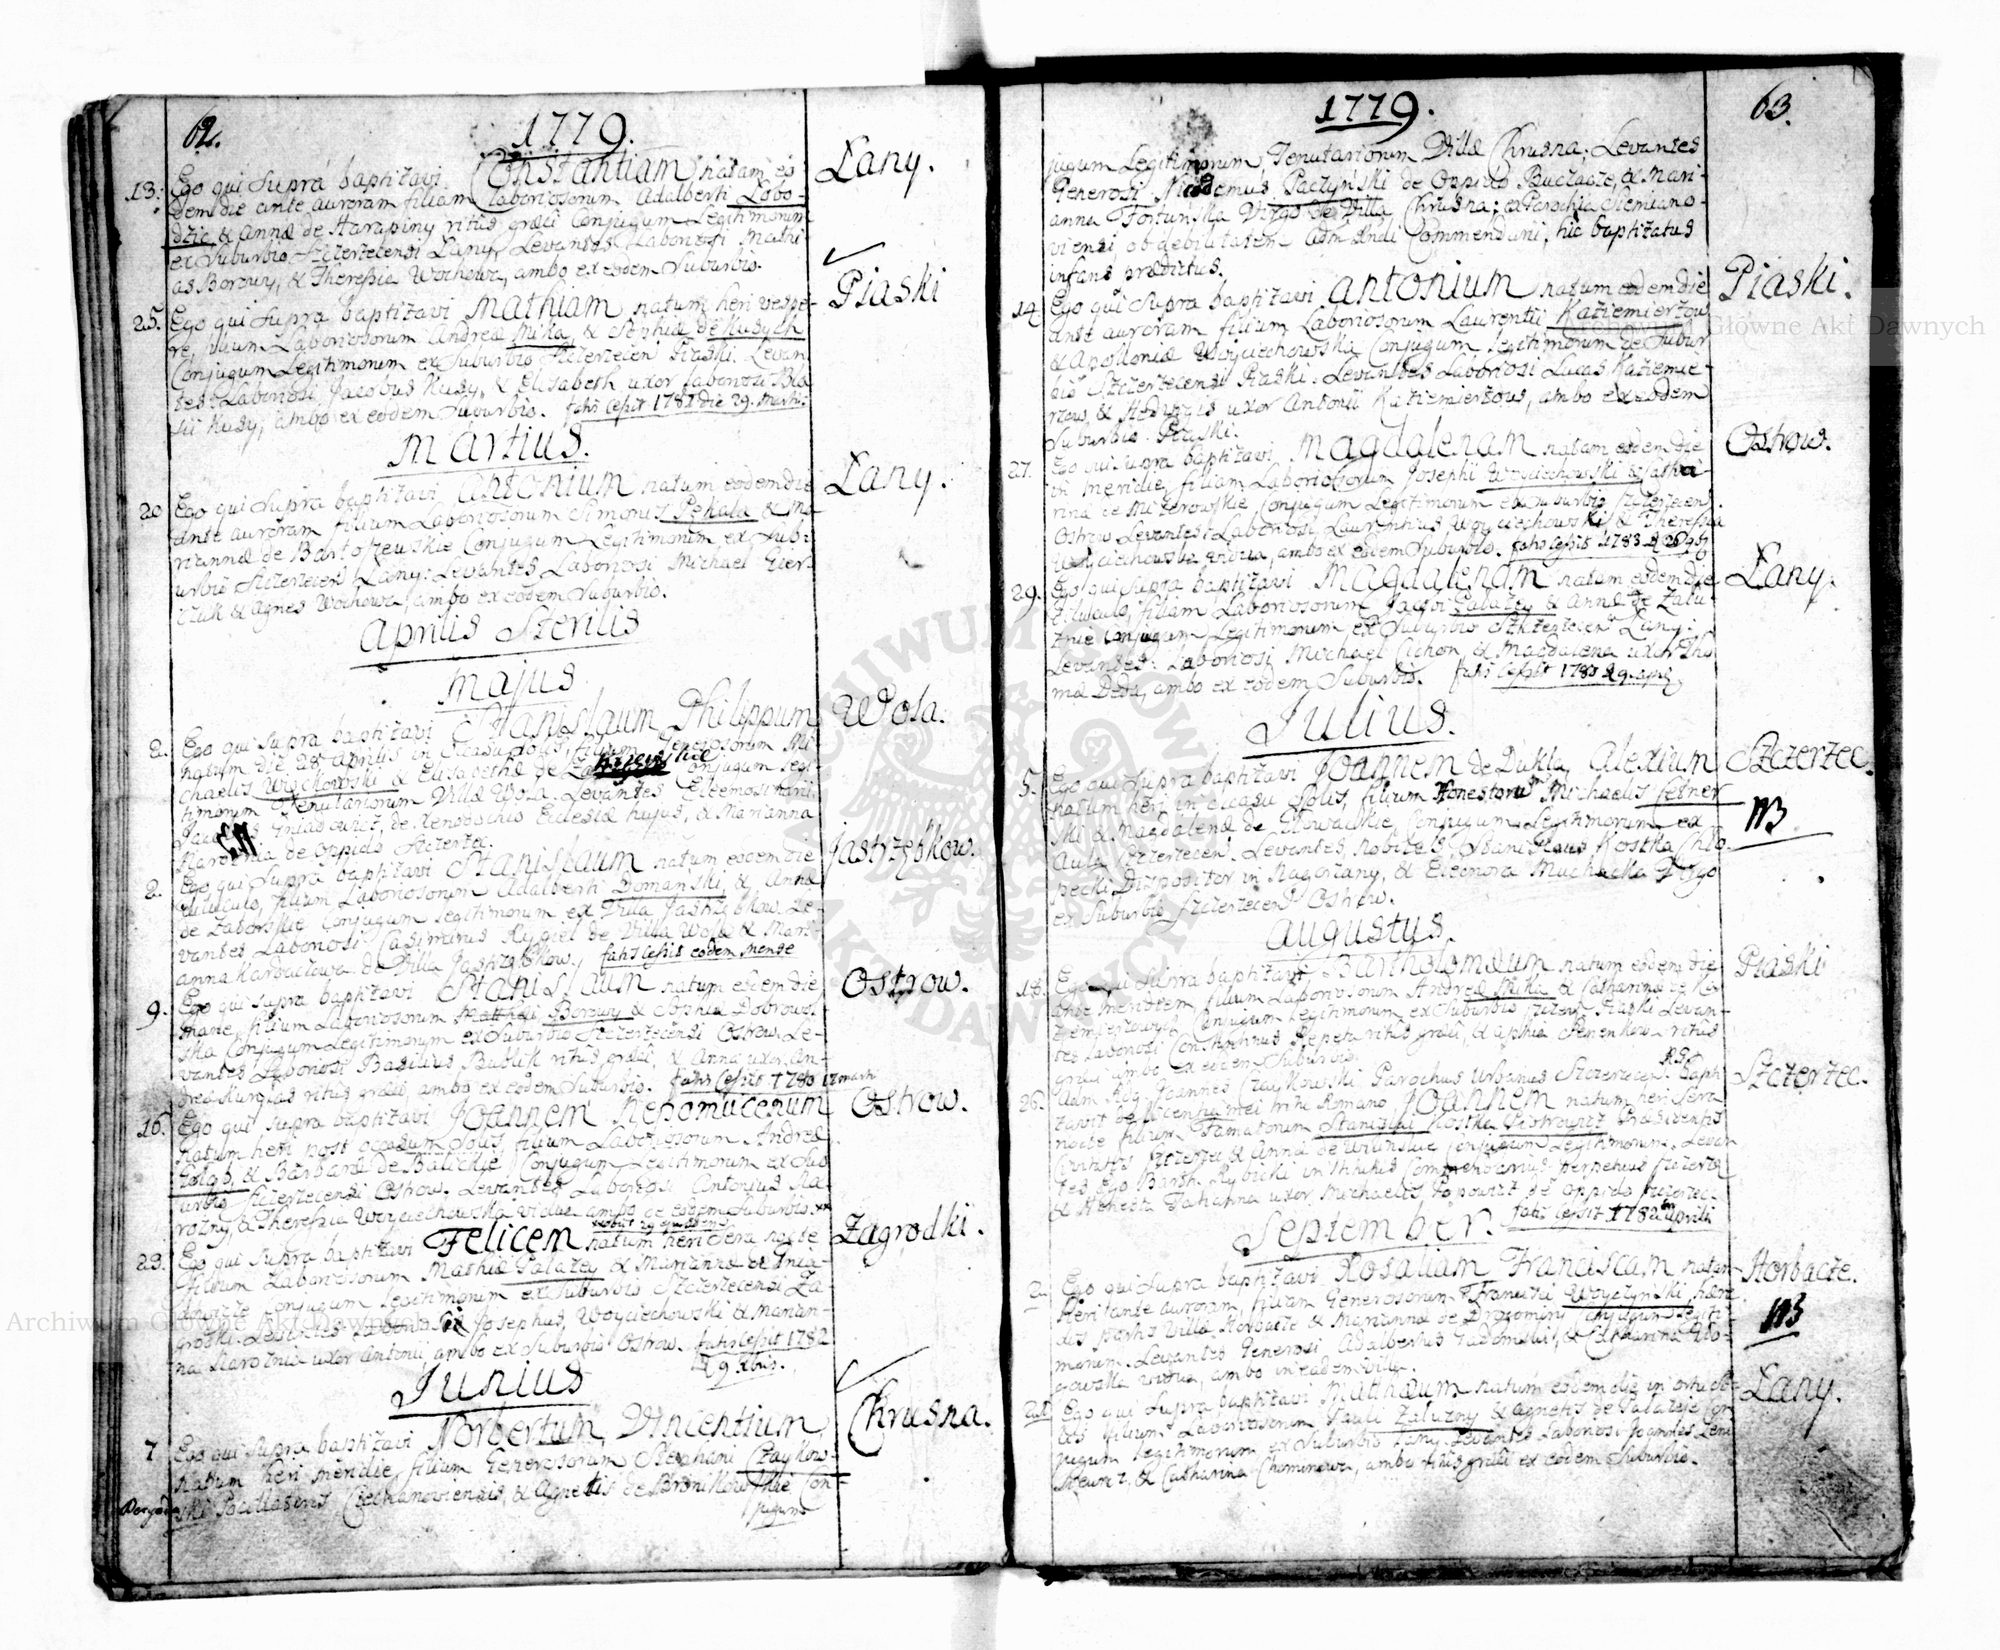 62.
1779.
13.
Ego qui supra baptizavi Constantiam natam eo-
dem die ante auroram filiam Laboriosorum Adalberti Lobo-
dzic & Annæ de Harapiny ritus græci Conjugum Legitimorum
ex Suburbio Szczerzecensi Łany, Levantes Laboriosi Mathi-
as Borowy, & Theressia Wochowa, ambo ex eodem Suburbio.
Łany.
25.
Ego qui supra baptizavi Mathiam natum heri vespe-
re, filium Laboriosorum Andreæ Mika, & Sophiæ de Kusych
Conjugum Legitimorum ex Suburbio Szczerzecen Piaski. Levan-
tes: Laboriosi Jacobus Kusy, & Elisabeth uxor laboriosi Bla-
sii Kusy, ambo ex eodem Suburbio. fatis cessit 1781 die 29. Martii.
Piaski
Martius.
20
Ego qui supra baptizavi Antonium natum eodem die
ante auroram filium Laboriosorum Simonis Pękala & Ma-
riannæ de Bartoszewskie Conjugum Legitimorum ex Sub-
urbio Szczerzecen Łany: Levantes Laboriosi Michael Gier-
czuk & Agnes Wochowa, ambo ex eodem Suburbio.
Łany.
Aprilis Sterilis
Majus
2.
Ego qui supra baptizavi Stanislaum Philippum
natum die 28 Aprilis in occasu solis, filium Generosorum Mi-
chaelis Woickowski & Elisabethæ de Conjugum legi-
timorum Tenutariorum Villæ Wola. Levantes Eleemosinarii
Gniadowicz, de Xenodochio Ecclesiæ hujus, & Marianna
de oppido Szczerzec.
Wola.
2.
Ego qui supra baptizavi Stanislaum natum eodem die
diluculo, filium Laboriosorum Adalberti Domanski & Annæ
de Zaborskie Conjugum legitimorum ex Villa Jastrzębkow. Le-
vantes Laboriosi Casimirus Kygiel de Villa Wola & Mari-
anna Karbaczowa de Villa Jastrzębkow, fatis cessit eodem mense
Jastrzębkow.
9.
Ego qui supra baptizavi Stanislaum natum eodem die
mane, filium Laboriosorum Matthæi Borowy & Sophiæ Dobrows-
ska Conjugum Legitimorum ex Suburbio Szczerzecensi Ostrow. Le-
vantes Laboriosi Basilius Bublik ritus græci, & Anna uxor An-
dreæ ritus græci, ambo ex eodem Suburbio. fatis cessit 1780 12 Martii
Ostrow.
16.
Ego qui supra baptizavi Joannem Nepomucenum
natum heri post occasum solis, filium Laboriosorum Andreæ
Gołąb, & Barbaræ de Balickie Conjugum Legitimorum ex Sub-
urbio Szczerzecensi Ostrow. Levantes Laboriosi Antonius Na-
rozny, & Theressia Woyciechowska vidua, ambo de eodem Suburbio.
Ostrow.
23.
Ego qui supra baptizavi Felicem natum heri sera nocte
filium Laboriosorum Mathiæ Pałazey & Mariannæ de Gnia-
dowicze Conjugum legitimorum ex Suburbio Szczerzecensi Za-
grodki. Levantes Laboriosi Josephus Woyciechowski & Marian-
na Narozna uxor Antonii, ambo ex Suburbio Ostrow. fatis cessit 1782
9 Xbris.
Zagrodki.
Junius
7
Ego qui supra baptizavi Norbertum, Vincentium
natum heri meridie, filium Generosorum Stephani Czaykow-
ski Ciechanoviensis, & Agnetis de Bronikowskie Con-
jugum
Chrusna.
1779.
63.
jugum Legitimorum Tenutariorum Villæ Chrusna; Levantes
Generosi Nicodemus Paczyński de Oppido Buczacze, & Mari-
anna Fortunska Virgo de Villa Chrusna; ex Parochia Siemiano-
viensi, ob debilitatem Adm Rndi Commendarii, hic baptizatus
infans prædictus.
14.
Ego qui supra baptizavi Antonium natum eodem die
ante auroram filium Laboriosorum Laurentii Kaziemierzow
& Apolloniæ Woyciechowska Conjugum legitimorum de Subur-
bio Szczerzecensi Piaski. Levantes Laboriosi Lucas Kaziemie-
rzow & Hedvigis uxor Antonii Kaziemierzow, ambo ex eodem
Suburbio Piaski.
Piaski.
27.
Ego qui supra baptizavi Magdalenam natam eodem die
in meridie, filiam Laboriosorum Josephi Woyciechowski & Catha-
rinæ de Mizerowskie, Conjugum Legitimorum ex Suburbio Szczerzecen
Ostrow Levantes: Laboriosi Laurentius Woyciechowski & Theressia
Woyciechowska vidua, ambo ex eodem Suburbio. fatis cessit 1783
Ostrow.
29.
Ego qui supra baptizavi Magdalenam natam eodem die
diluculo, filiam Laboriosorum Jacobi Pałazey & Annæ de Zału-
znie Conjugum Legitimorum ex Suburbio Szczerzecen Łany:
Levantes: Laboriosi Michael Cichon, & Magdalena uxor Tho-
mæ Deda, ambo ex eodem Suburbio. fatis cessit
Łany.
Julius.
5.
Ego qui supra baptizavi Joannem de Dukla, Alexium
natum heri in occasu solis, filium Honestorum Michaelis Lesner
ski & Magdalenæ de Głowackie Conjugum Legitimorum ex
Aula Szczerzecen. Levantes Nobiles Stanislaus Kostka Chło-
pecki Dispositor in Nagorzany, & Eleonora Muchacka Virgo
ex Suburbio Szczerzecen Ostrow.
Szczerzec.
NB
Augustus
18.
Ego qui supra baptizavi Bartholomæum natum eodem die
ante meridiem, filium Laboriosorum Andreæ Mika & Catharinæ de Ka-
ziemierzowych Conjugum legitimorum ex Suburbio Szczerzecen Piaski Levan-
tes Laboriosi Constantinus Repeta ritus græci, & Aphia Senenkow ritus
græci ambo ex eodem Suburbio.
Piaski
26.
Adm Rndus Joannes Czaykowski Parochus Urbanus Szczerzecen R.G. bapti-
zavit de licentia mei ritu Romano, Joannem natum heri sera
nocte filium Famatorum Stanislai Kostka Piotrowicz Præsidentis
Civitatis Szczerzec & Annæ de Wilinskie Conjugum Legitimorum. Levan-
tes Ego Barth. Rybicki Commendarius Szczerze
& Honesta Tatianna uxor Michaelis Popowicz de oppido Szczerzec.
fatis cessit 1782 Aprilis
Szczerzec.
September.
2.
Ego qui supra baptizavi Rosaliam Franciscam natam
heri ante auroram, filiam Generosorum Francisci Woyczynski, hære-
dis partis Villæ Horbacze & Mariannæ de Dragominy Conjugum legiti-
morum. Levantes Generosi Adalbertus Jadomski, & Catharina Gło-
gowska vidua, ambo in eadem Villa.
Horbacze.
NB
21
Ego qui supra baptizavi Matthæum natum eodem die in ortu so-
lis filium Laboriosorum Pauli Załuzny & Agnetis de Pałazeje Con-
jugum legitimorum ex Suburbio Łany. Levantes Laboriosi Joannes
& Catharina Chominowa, ambo ritus græci ex eodem Suburbio.
Łany.
Archiwum Główne Akt Dawnych
Archiwum Główne Akt Dawnych
ARCHIWUM GŁÓWNE AKT DAWNYCH